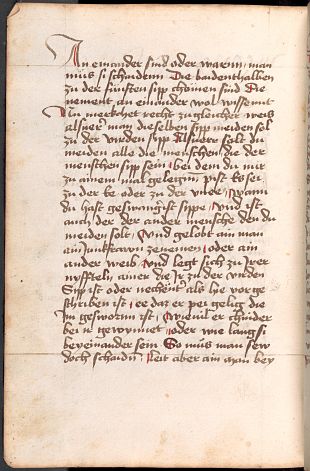 An einander sind oder warnn / man
mus si schaidenn Die baidenthalben
zu der funften sipp chömen sind Die
nement an einander wol wissennt
Nu merkchet recht zu gleicher weis
als wer man dieselben sipp meiden sol
zu der vierden sipp Als wer solt du
meiden alle die menschen die der
menschen sipp sein / bei dem du nur
zu ainem mal gelegen pist Es sei
zu der ee oder zu der vnee / wann
du hast geswingist sippe / vnd ist
auch der der ander mensche den du
meiden solt / vnd gelobt ain man
ain Junkfrawn zenemen / oder ain
ander weib / vnd legt sich zu Irer
nyfftelen / ainer die Ir zu der vierden
Sip ist oder nechner als hie vorge
schriben ist / ee daz er pei gelig die
Im gesworen ist / wieuil er chinder
bei ir gewynnet / oder wie lang si
beyeinander sein So mus man sew
doch schaidn / Leit aber ain man bey